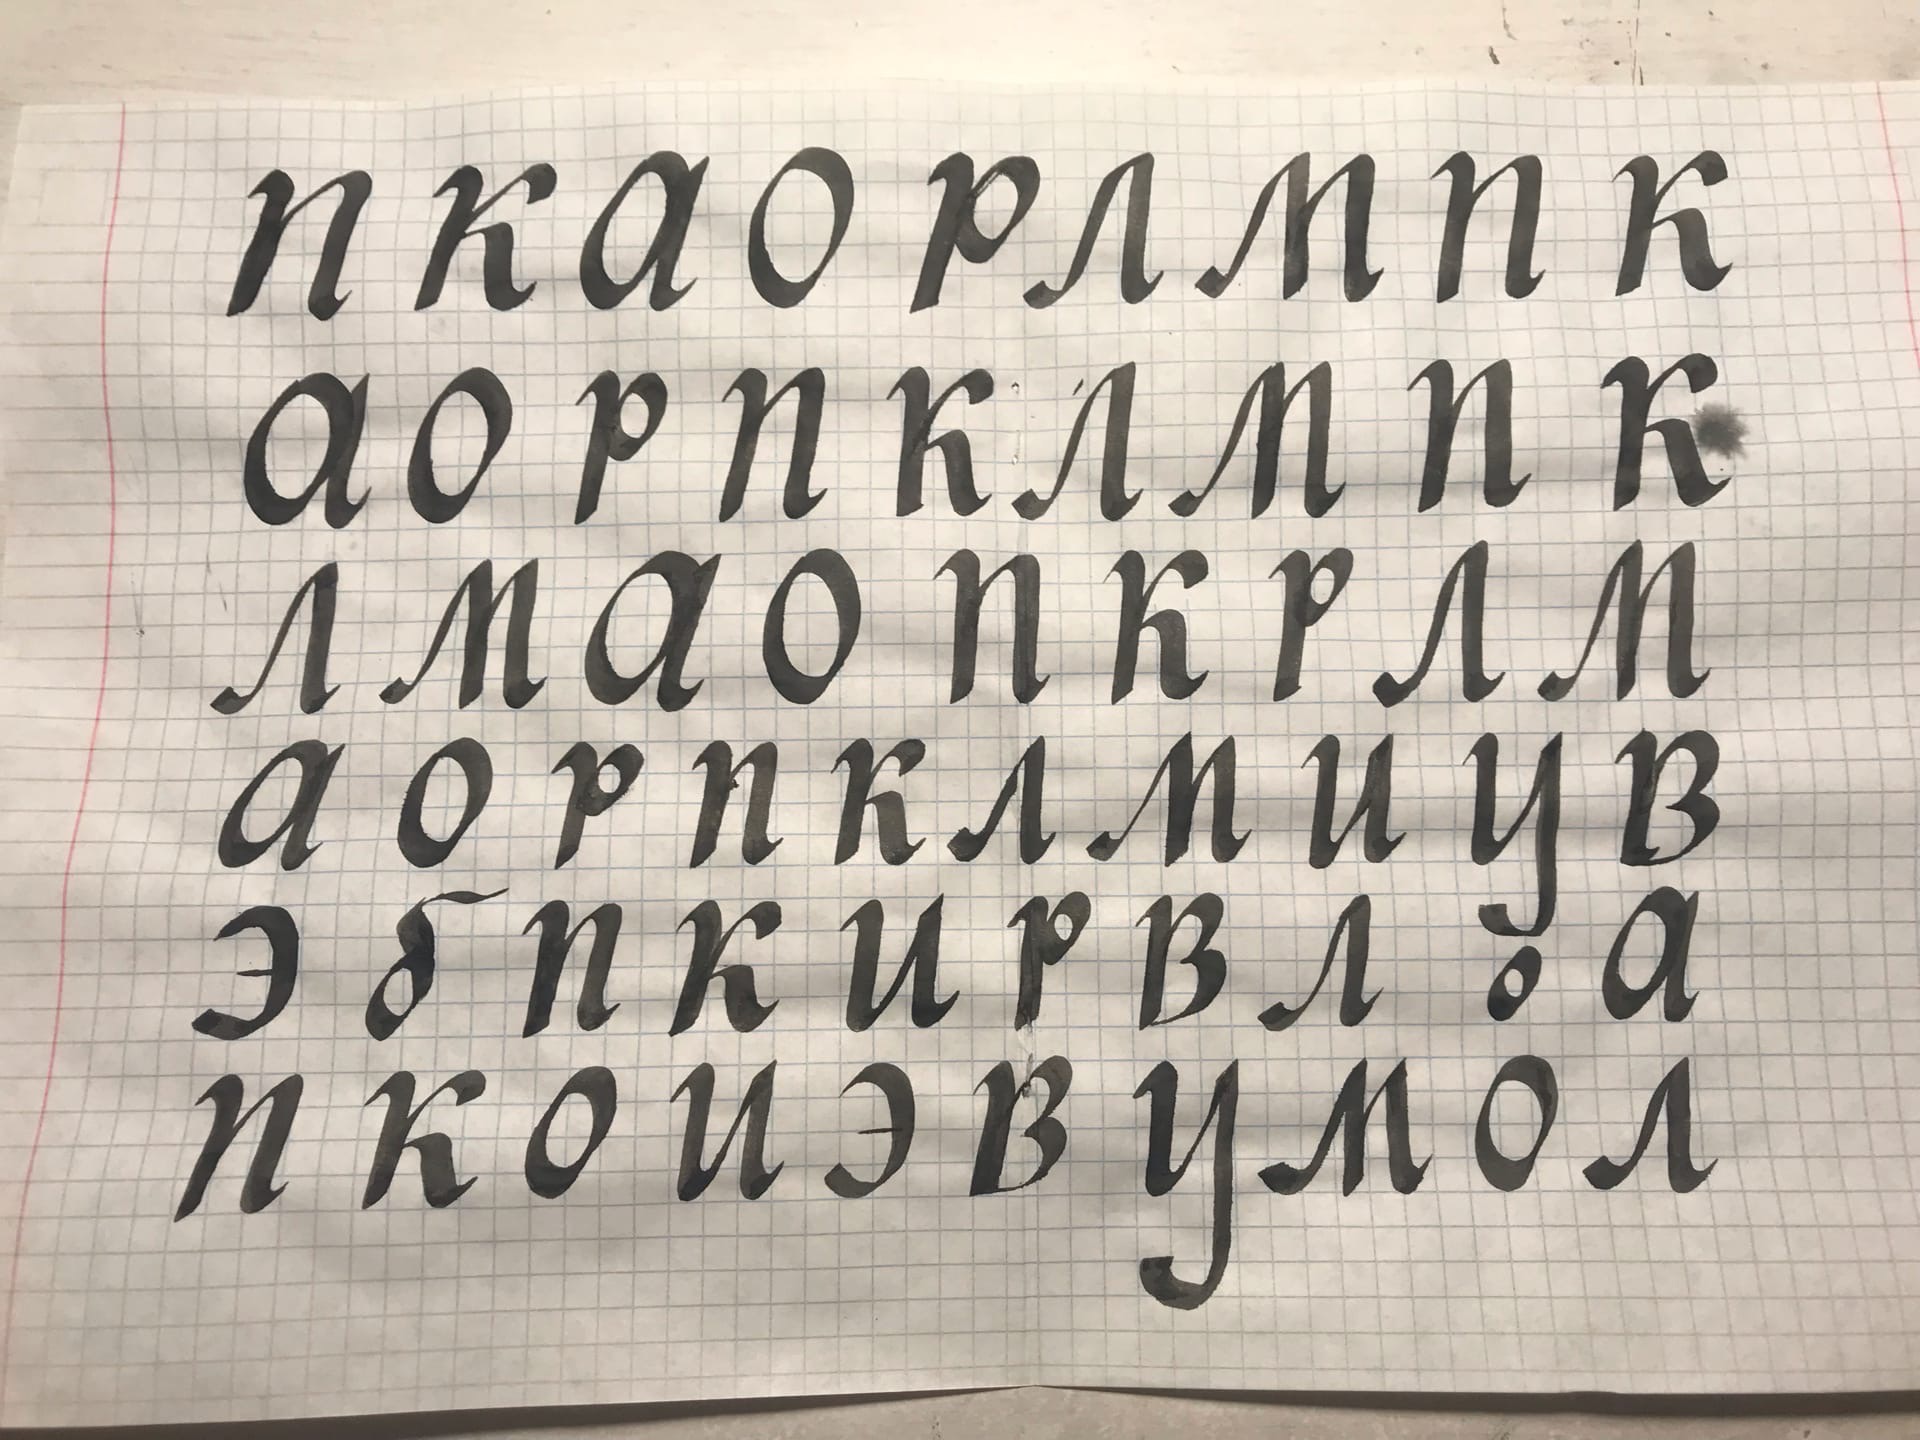 п к а о р л м п к
а о р п к л м п к
л м а о п к р л м
а о р п к л м и у в
э б п к и р в л о а
п к о и э в у м о л